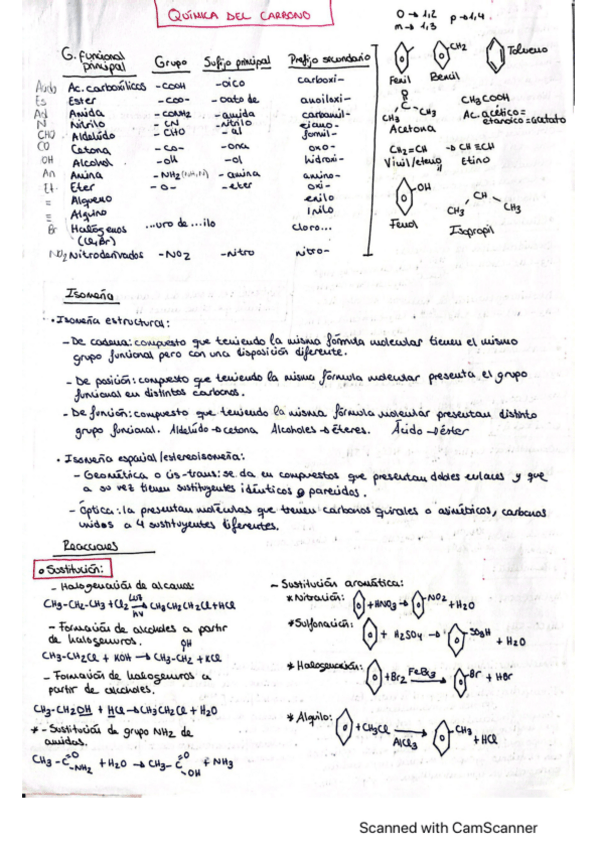 QUÍMICA DEL CARBONO
O → 1,2 p → 1,4
m → 1,3
G. Funcional principal Grupo Sufijo principal Prefijo secundario
Ac. carboxílicos -COOH -oico carboxi-
Es Ester -COO- -oato de
Amida -CONH2 -amida carbamil-
N Nitrilo -CN -nitrilo ciano-
CHO Aldeído -CHO -al formil-
CO Cetona -CO- -ona oxo-
OH Alcohol -OH -ol hidroxi-
An Amina -NH2 (NH, N) -amina amino-
Et Eter -O- -eter oxi-
= Alqueno enilo
≡ Alquino inilo
Br Halógenos (Cl, Br) ...uro de ...ilo cloro...
NO2 Nitroderivados -NO2 -nitro nitro-
Fenil
CH2
Bencil
Tolueno
O
C
CH3 CH3
Acetona
CH3COOH
Ac. acético =
CH2=CH
Vinil/etenil
CH≡CH
Etino
OH
Fenol
CH
CH3 CH3
Isopropil
Isomería
• Isomería estructural:
- De cadena: compuesto que teniendo la misma fórmula molecular tienen el mismo
grupo funcional pero con una disposición diferente.
- De posición: compuesto que teniendo la misma fórmula molecular presenta el grupo
funcional en distintos carbonos.
- De función: compuesto que teniendo la misma fórmula molecular presentan distinto
grupo funcional. Aldeído → cetona Alcoholes → éteres. Ácido → éster
• Isomería espacial/estereoisomería:
- Geométrica o cis-trans: se da en compuestos que presentan dobles enlaces y que
a su vez tienen sustituyentes idénticos o parecidos.
- Óptica: la presentan moléculas que tienen carbonos quirales o asimétricos, carbonos
unidos a 4 sustituyentes diferentes.
Reacciones
• Sustitución:
- Halogenación de alcanos:
CH3-CH2-CH3 + Cl2 luz hv → CH3CH2CH2Cl + HCl
- Formación de alcoholes a partir
de halogenuros.
OH
CH3-CH2Cl + KOH → CH3-CH2 + KCl
- Formación de halogenuros a
partir de alcoholes.
CH3-CH2OH + HCl → CH3CH2Cl + H2O
* - Sustitución de grupo NH2 de
amidas.
CH3-C O -NH2 + H2O → CH3-C O -OH + NH3
- Sustitución aromática:
* Nitración: + HNO3 → NO2 + H2O
* Sulfonación: + H2SO4 → SO3H + H2O
* Halogenación: + Br2 FeBr3 → Br + HBr
* Alquilo: + CH3Cl AlCl3 → CH3 + HCl
Scanned with CamScanner